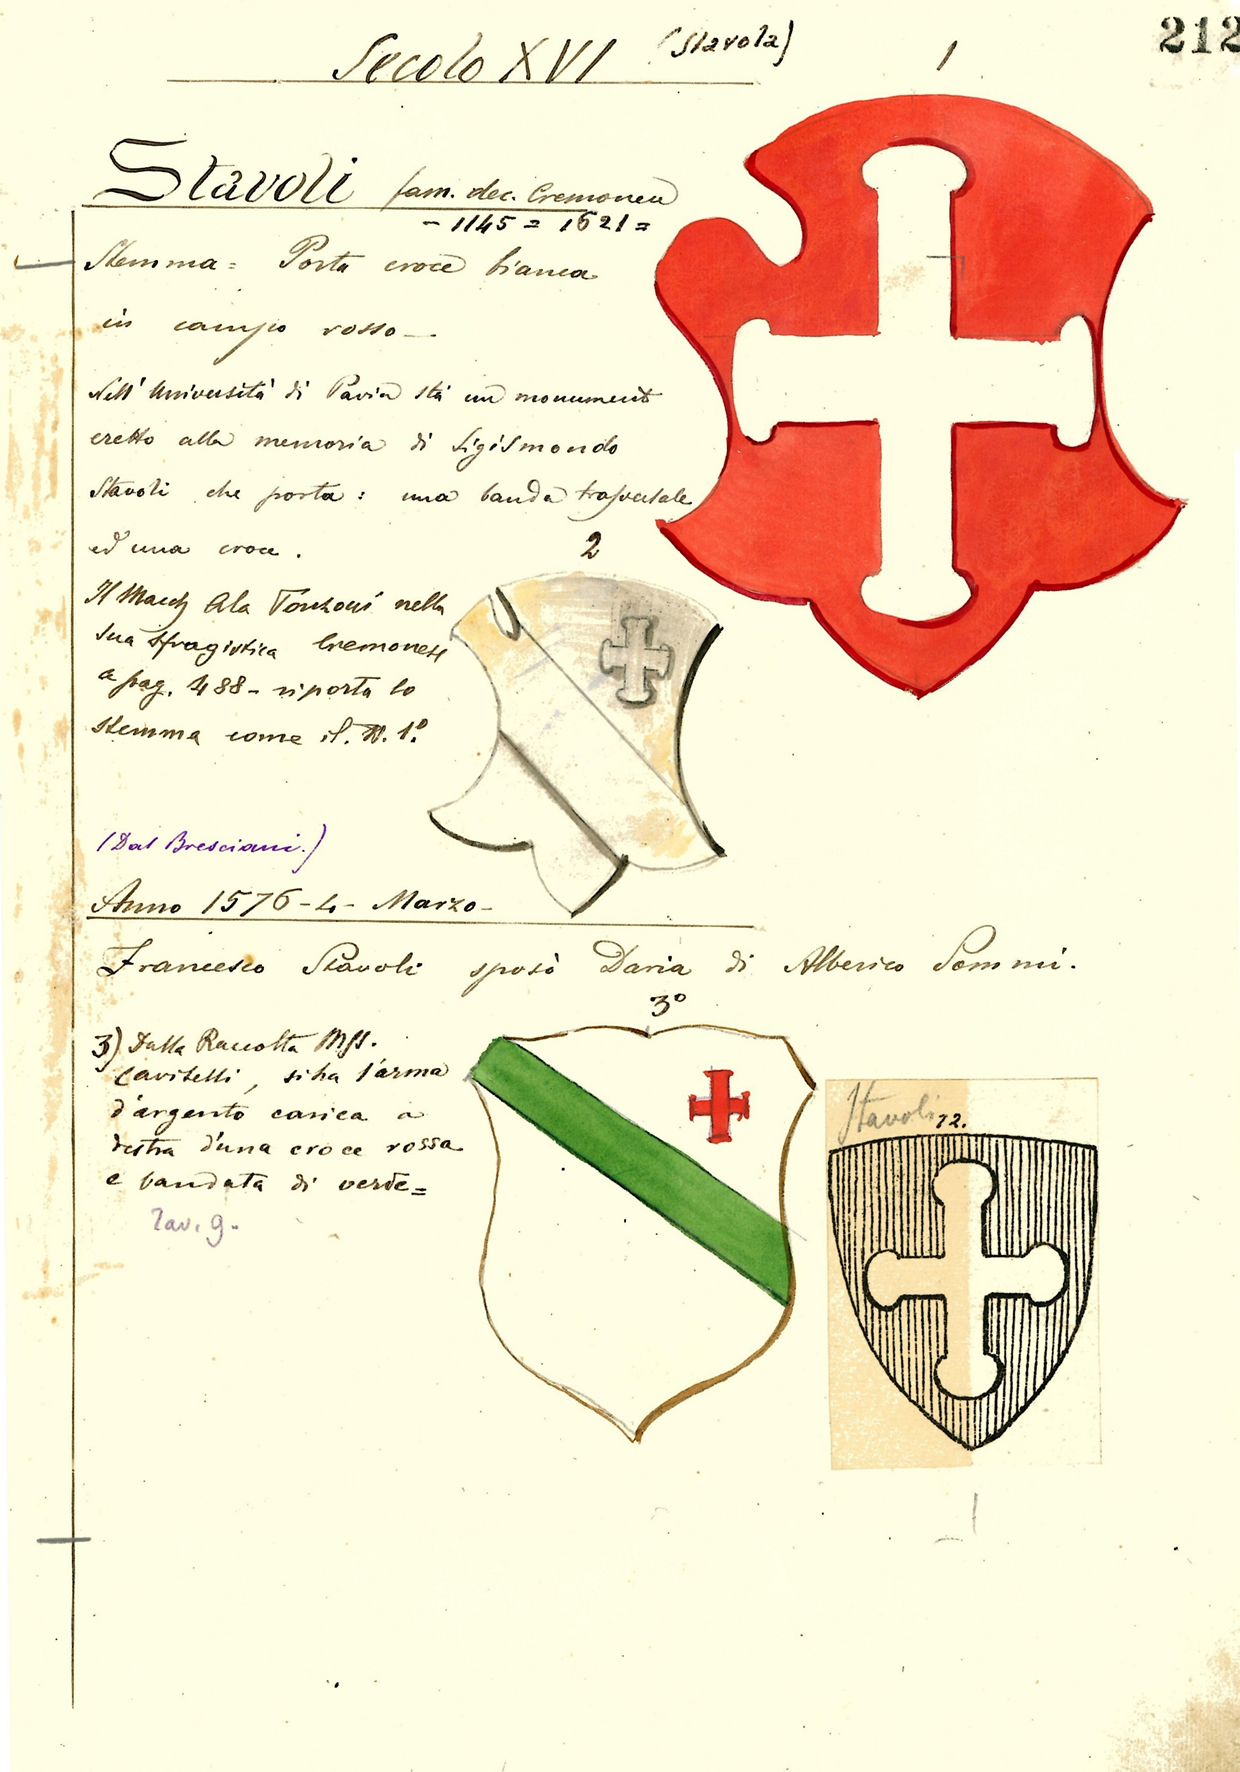 212
Secolo XVI (Stavola) 1
Stavoli fam. dec. Cremonese
- 1145 = 1621 =
Stemma = Porta croce bianca
in campo rosso -
Nell' Università di Pavia stà un monumento
eretto alla memoria di Sigismondo
Stavoli che porta : una banda trasversale
ed una croce .
2
Il March Ala Ponzoni nella
sua sfragistica Cremonese
a pag. 488 - riporta lo
stemma come il N. 1º
(Dal Bresciani.)
Anno 1576 - 4 - Marzo -
Francesco Stavoli sposò Daria di Alberico Sommi.
3º
3) Dalla Raccolta Mss.
Cavitelli, si ha l'arma
d'argento carica a
destra d'una croce rossa
e bandata di verde =
Tav. 9.
Stavoli 72.